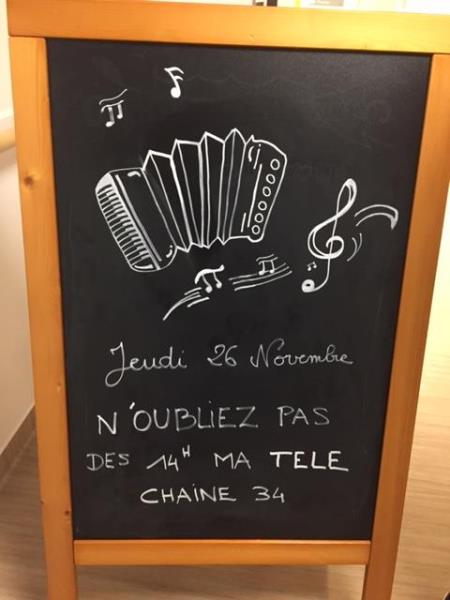 Jeudi 26 Novembre
N'OUBLIEZ PAS
DES 14H MA TELE
CHAINE 34